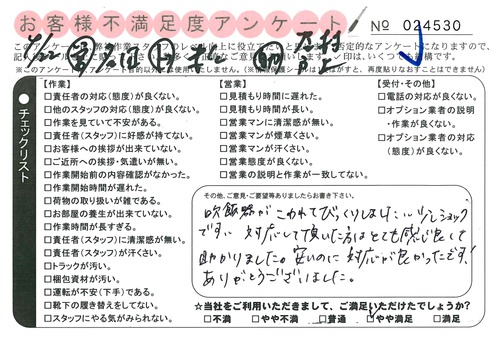 お客様不満足度アンケート
№ 034530
【作業】
□責任者の対応(態度)が良くない。
□他のスタッフの対応(態度)が良くない。
□作業を見ていて不安がある。
□責任者(スタッフ)に好感が持てない。
□お客様への挨拶が出来ていない。
□ご近所への挨拶・気遣いが無い。
□作業開始前の内容確認がなかった。
□作業開始時間が遅れた。
□荷物の取り扱いが雑である。
□お部屋の養生が出来ていない。
□作業時間が長すぎる。
□責任者(スタッフ)に清潔感が無い。
□責任者(スタッフ)が汗くさい。
□トラックが汚い。
□梱包資材が汚い。
□運転が不安(下手)である。
□靴下の履き替えをしてない。
□スタッフにやる気がみられない。
【営業】
□見積もり時間に遅れた。
□見積もり時間が長い。
□営業マンに清潔感が無い。
□営業マンが煙草くさい。
□営業マンが汗くさい。
□営業態度が良くない。
□営業の説明と作業が一致してない。
【受付・その他】
□電話の対応が良くない。
□オプション業者の説明・作業が良くない。
□オプション業者の対応(態度)が良くない。
チェックリスト
その他、ご意見・ご要望等ありましたらお書き下さい。
炊飯器がこわれてびっくりしました... 少しショック
です... 対応して頂いた方はとても感じ良くて
助かりました。安いのに対応が良かったです!
ありがとうございました。
☆当社をご利用いただきまして、ご満足いただけたでしょうか?
□不満 □やや不満 □普通 □やや満足 □満足